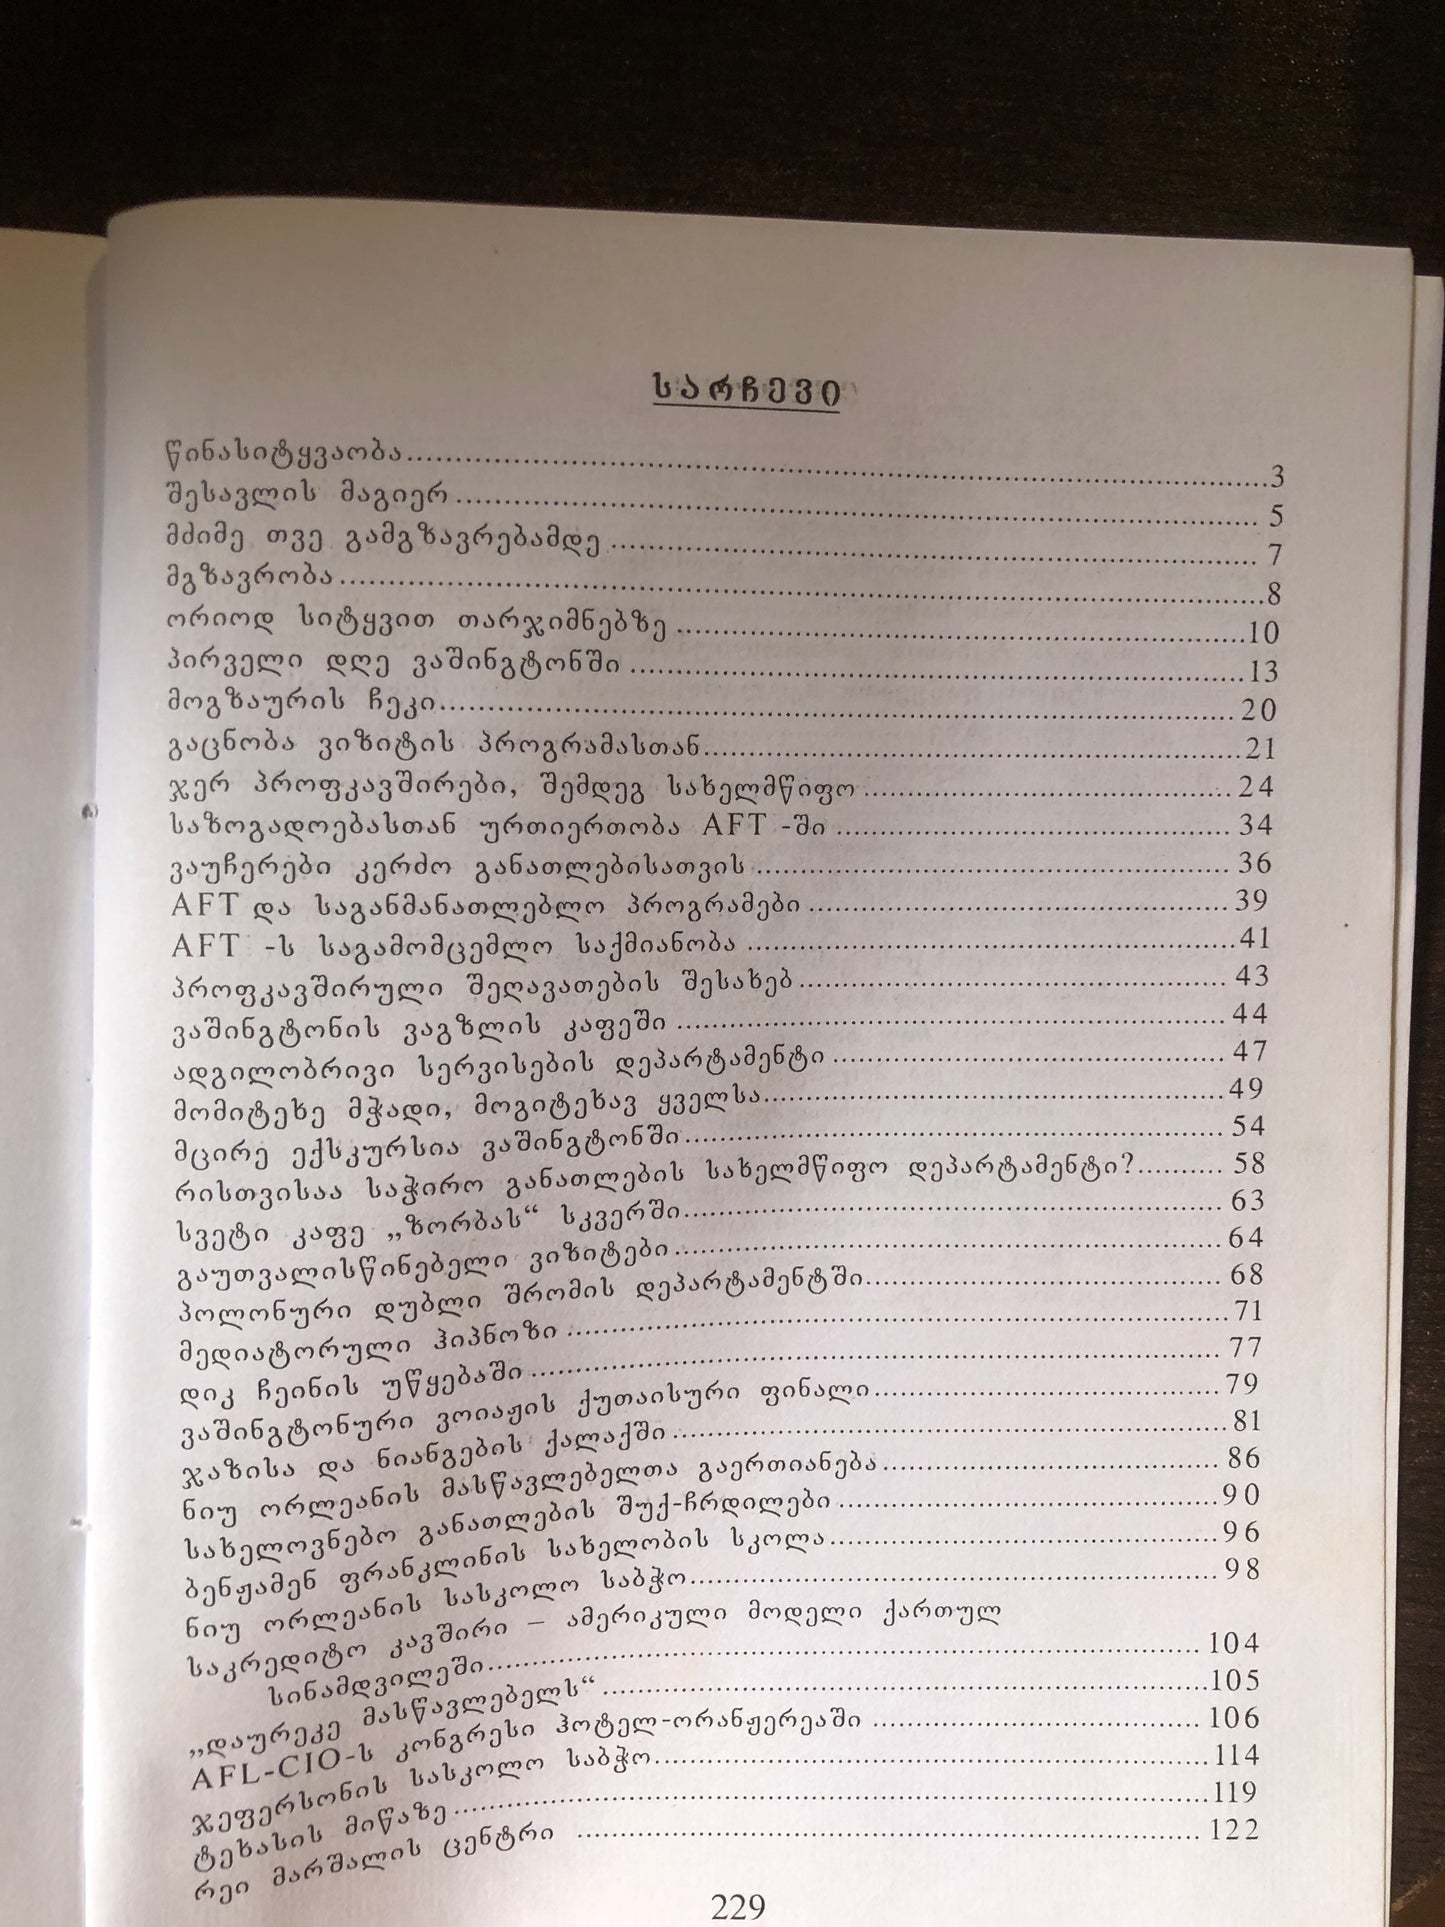 სარჩევი
წინასიტყვაობა................3
შესავლის მაგიერ................ 5
მძიმე თვე გამგზავრებამდე................ 7
მგზავრობა................8
ორიოდ სიტყვით თარჯიმნებზე................10
პირველი დღე ვაშინგტონში................13
მოგზაურის ჩეკი................20
გაცნობა ვიზიტის პროგრამასთან................21
ჯერ პროფკავშირები, შემდეგ სახელმწიფო................24
საზოგადოებასთან ურთიერთობა AFT -ში................34
ვაუჩერები კერძო განათლებისათვის................36
AFT და საგანმანათლებლო პროგრამები................39
AFT -ს საგამომცემლო საქმიანობა................41
პროფკავშირული შეღავათების შესახებ................43
ვაშინგტონის ვაგზლის კაფეში................44
ადგილობრივი სერვისების დეპარტამენტი................47
მომიტეხე მჭადი, მოგიტეხავ ყველსა................49
მცირე ექსკურსია ვაშინგტონში................54
რისთვისაა საჭირო განათლების სახელმწიფო დეპარტამენტი?.......... 58
სვეტი კაფე „ზორბას“ სკვერში................63
გაუთვალისწინებელი ვიზიტები................64
პოლონური დუბლი შრომის დეპარტამენტში................68
მედიატორული ჰიპნოზი................71
დიკ ჩეინის უწყებაში................77
ვაშინგტონური ვოიაჟის ქუთაისური ფინალი................79
ჯაზისა და ნიანგების ქალაქში................81
ნიუ ორლეანის მასწავლებელთა გაერთიანება................86
სახელოვნებო განათლების შუქ-ჩრდილები................90
ბენჟამენ ფრანკლინის სახელობის სკოლა................96
ნიუ ორლეანის სასკოლო საბჭო................98
საკრედიტო კავშირი – ამერიკული მოდელი ქართულ
სინამდვილეში................104
„დაურეკე მასწავლებელს“................105
AFL-CIO-ს კონგრესი ჰოტელ-ორანჟერეაში................106
ჯეფერსონის სასკოლო საბჭო................114
ტეხასის მიწაზე................119
რეი მარშალის ცენტრი................122
229